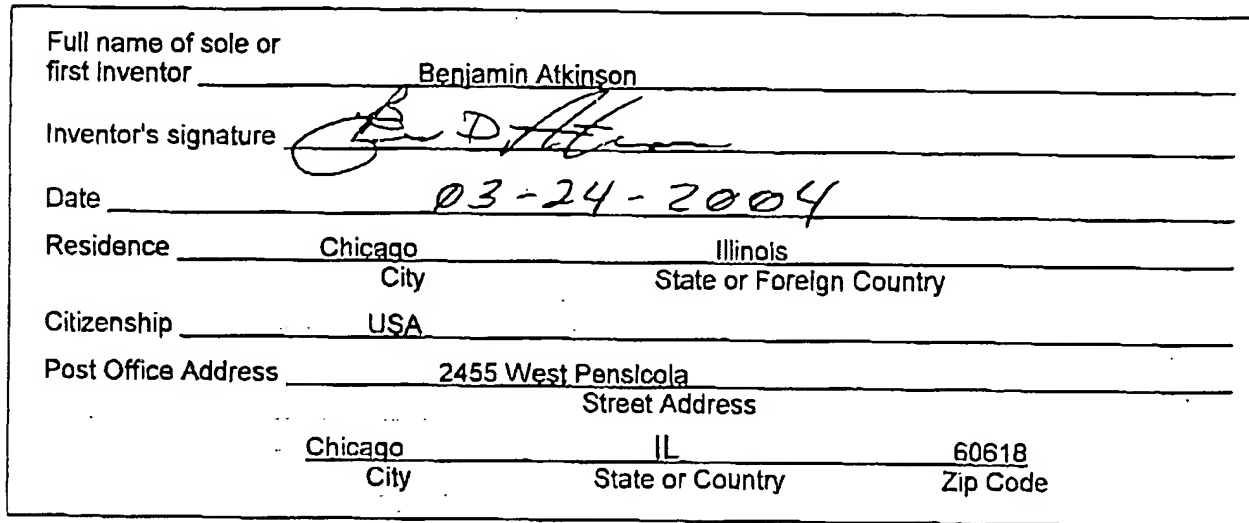 Full name of sole or
first Inventor Benjamin Atkinson
Inventor's signature Ben D. Atkinson
Date 03-24-2004
Residence Chicago Illinois
City State or Foreign Country
Citizenship USA
Post Office Address 2455 West Pensicola
Street Address
Chicago IL 60618
City State or Country Zip Code